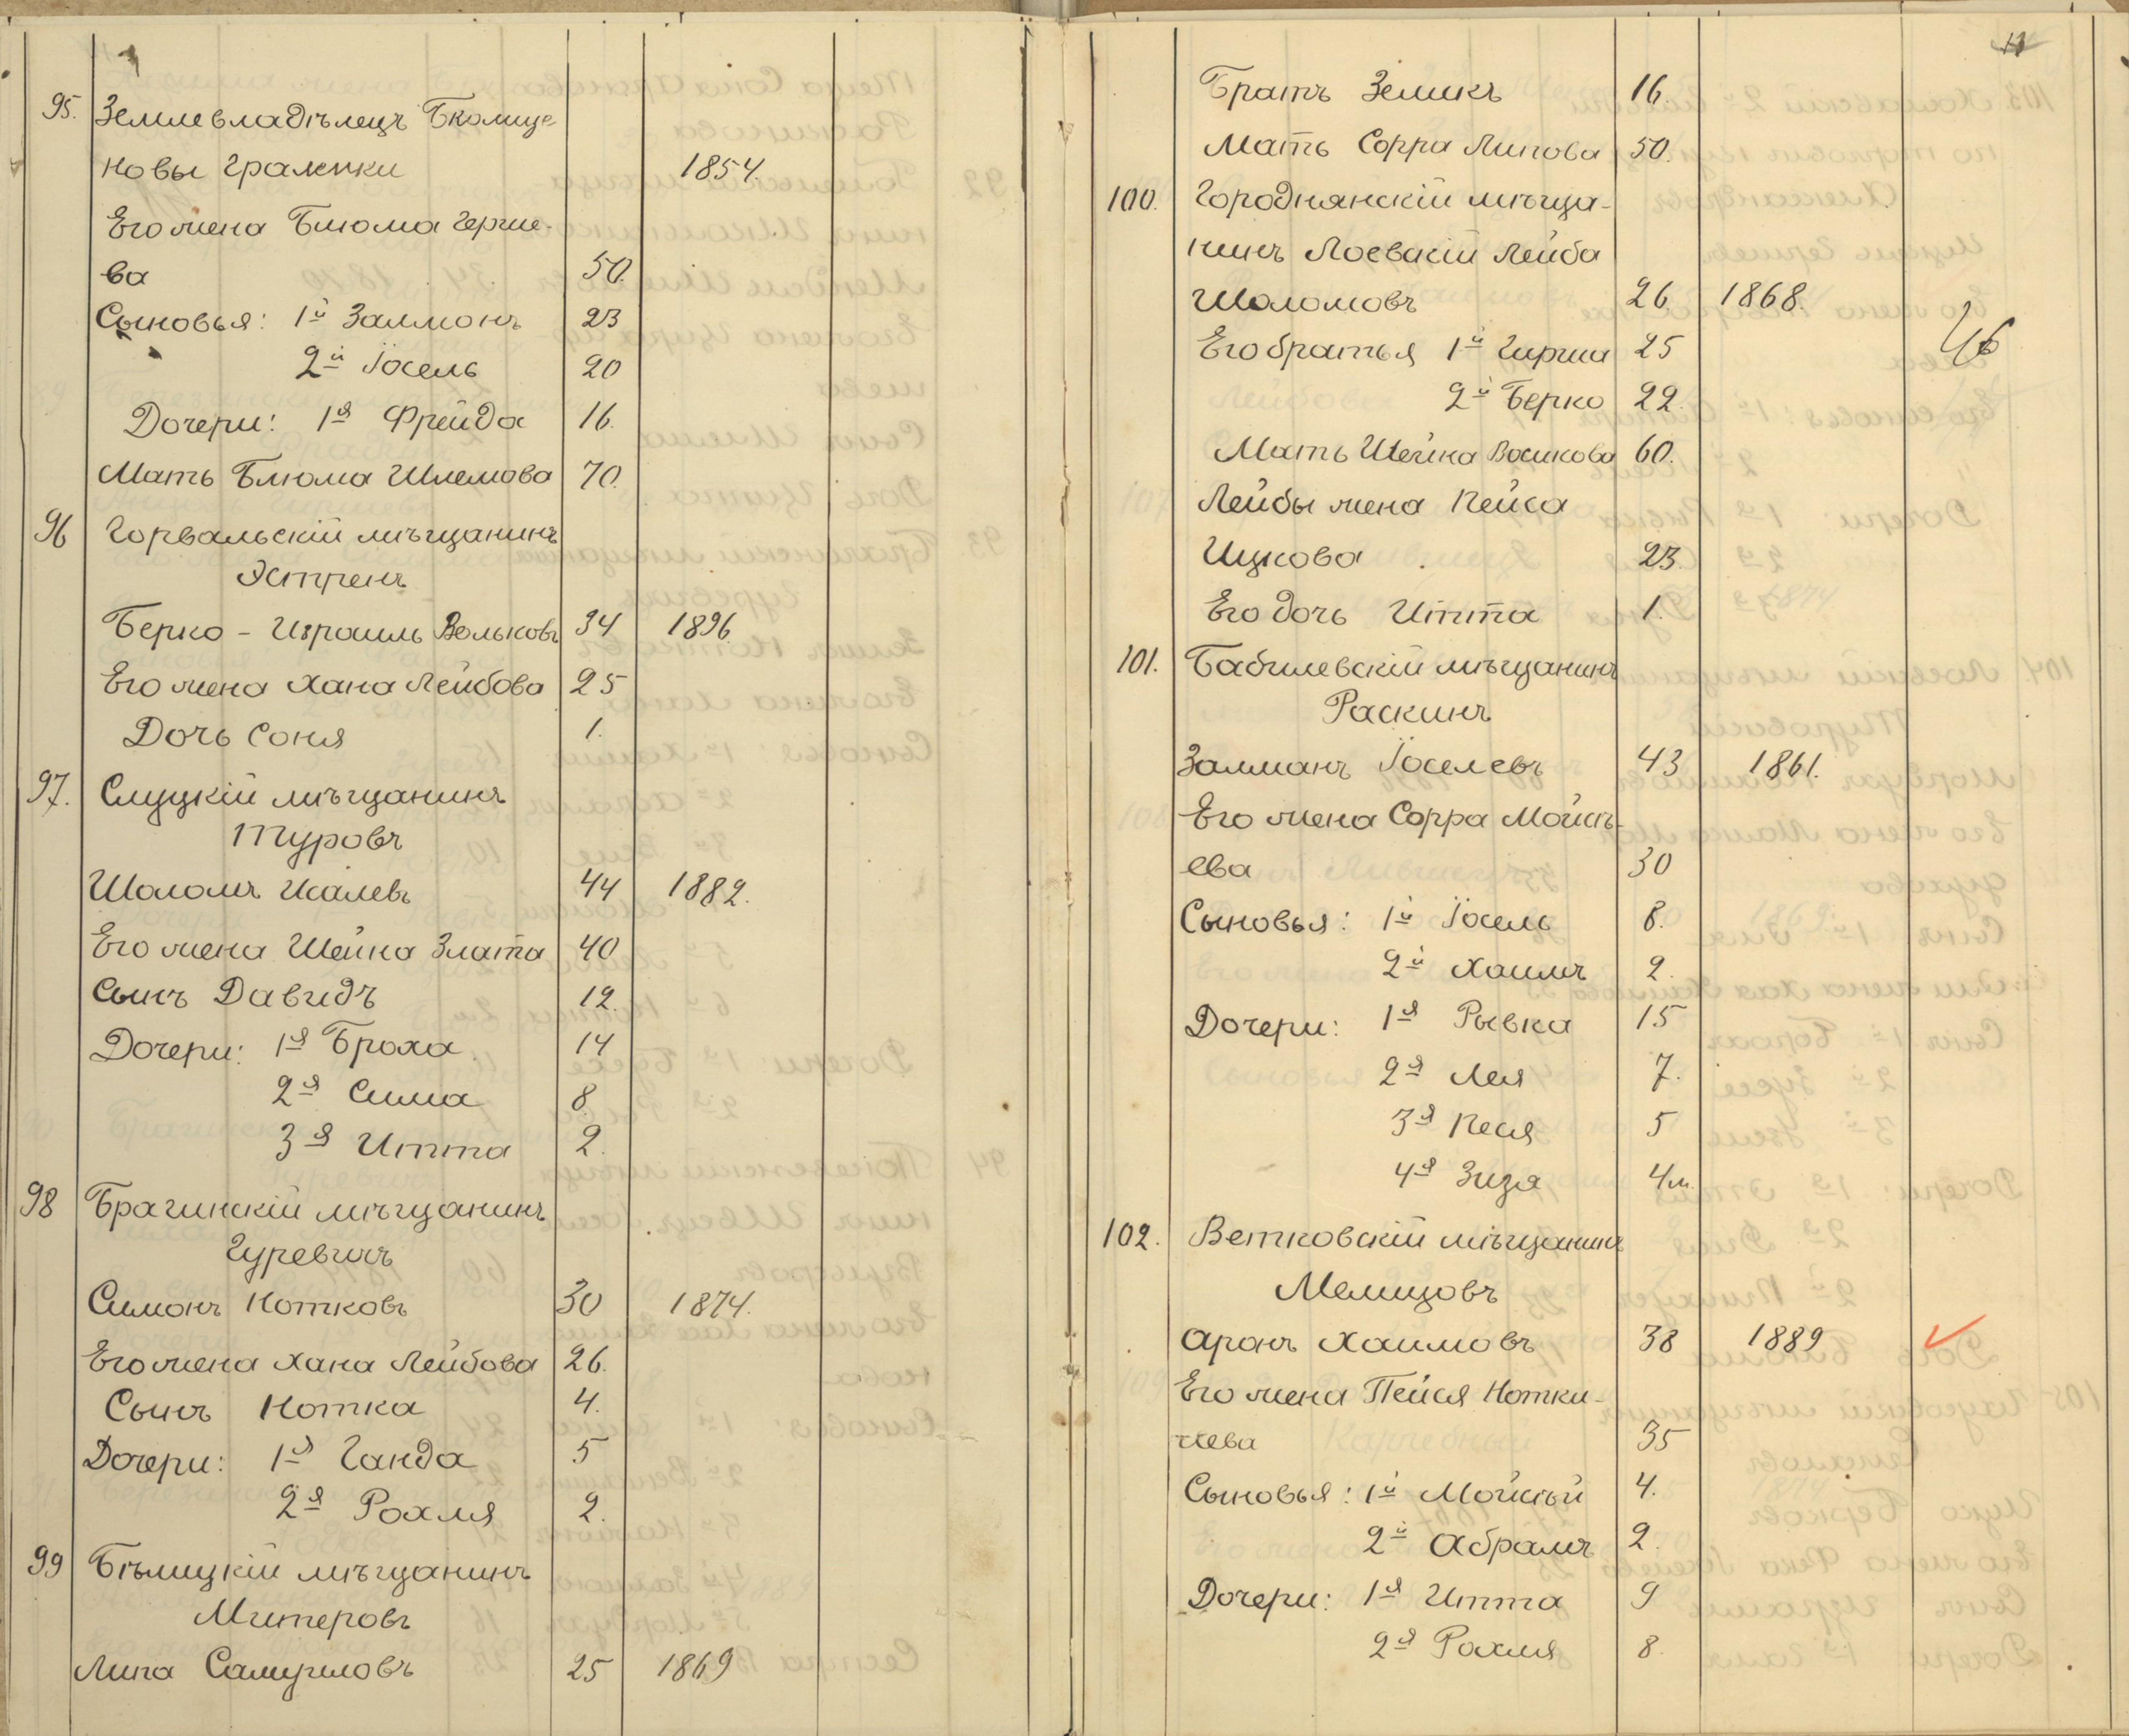 95. Землевладѣлецъ
новы Гралники 1854.
Его жена Блюма Герше-
ва 50.
Сыновья: 1й Залмонъ 23
2й Іосель 20
Дочери: 1я Фрейда 16.
Мать Блюма Шлемова 70.
96 Горвальскій мѣщанинъ
Эстринъ
Берко - Израиль Вольковъ 34 1896.
Его жена Хана Лейбова 25
Дочь Соня 1.
97. Слуцкій мѣщанинъ
Туровъ
Шоломъ Исалевъ 44 1882.
Его жена Шейна Злата 40
Сынъ Давидъ 12.
Дочери: 1я Броха 14
2я Сима 8.
3я Итта 2.
98 Брагинскій мѣщанинъ
Гуревичъ
Симонъ Нотковъ 30 1874.
Его жена Хана Лейбова 26.
Сынъ Нотка 4.
Дочери: 1я Ганда 5
2я Рохля 2.
99 Бѣлицкій мѣщанинъ
Митеровъ
Липа Самуиловъ 25 1869
11
Братъ Зеликъ 16.
Мать Сорра Липова 50.
100. Городнянскій мѣща-
нинъ Лоевскій Лейба
Шоломовъ 26 1868.
Его братья 1й Гирша 25 46
2й Берко 22.
Мать Шейна Воликова 60.
Лейбы жена Пейса
Ицкова 23.
Его дочь Итта 1.
101. Бабилевскій мѣщанинъ
Раскинъ
Залманъ Іоселевъ 43 1861.
Его жена Сорра Мойсѣ-
ева 30
Сыновья: 1й Іосель 8.
2й Хаимъ 2.
Дочери: 1я Рывка 15
2я Лея 7.
3я Песя 5
4я Зизя 4м.
102. Ветковскій мѣщанинъ
Мелицовъ
Аронъ Хаимовъ 38 1889
Его жена Пейся Нотки-
чева 35
Сыновья: 1й Мойсѣй 4.
2й Абрамъ 2.
Дочери: 1я Итта 9
2я Рохля 8.